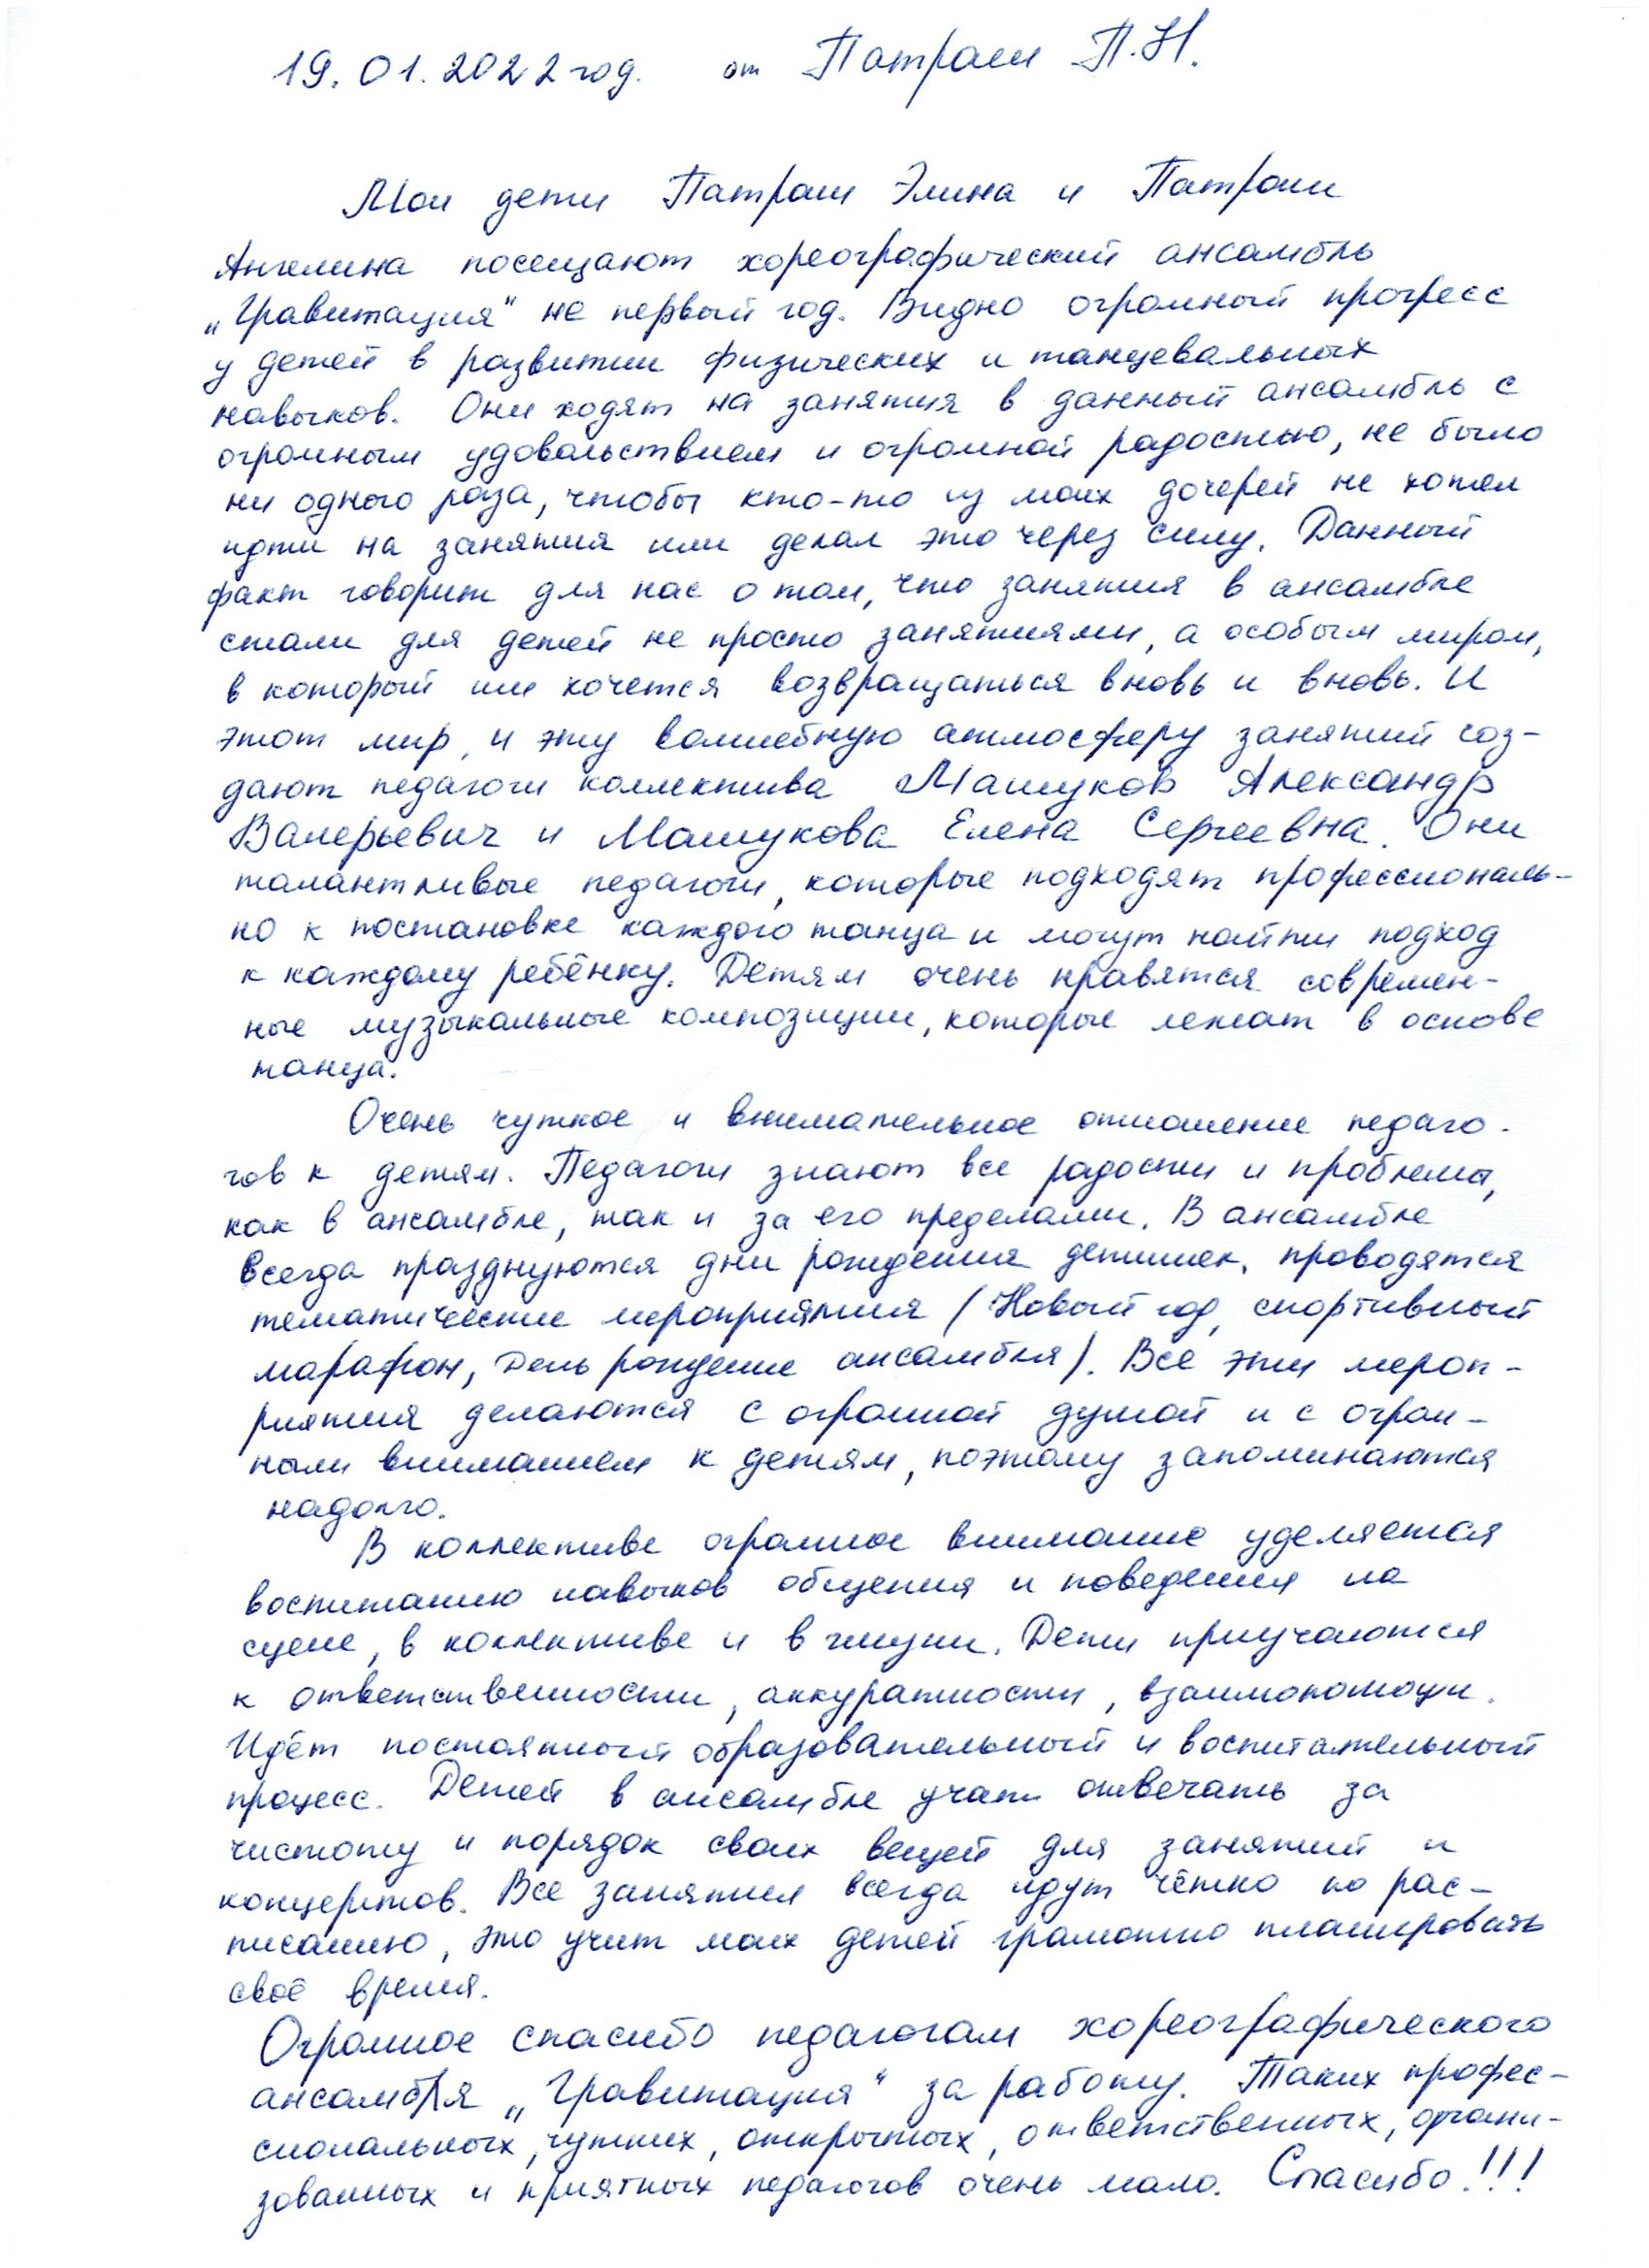 19.01.2022 год. от Патраш П.Н.
Мои дети Патраш Элина и Патраш
Ангелина посещают хореографический ансамбль
„Гравитация" не первый год. Видно огромный прогресс
у детей в развитии физических и танцевальных
навыков. Они ходят на занятия в данный ансамбль с
огромным удовольствием и огромной радостью, не было
ни одного раза, чтобы кто-то из моих дочерей не хотел
идти на занятия или делал это через силу. Данный
факт говорит для нас о том, что занятия в ансамбле
стали для детей не просто занятиями, а особым миром,
в который им хочется возвращаться вновь и вновь. И
этот мир, и эту волшебную атмосферу занятий соз-
дают педагоги коллектива Машуков Александр
Валерьевич и Машукова Елена Сергеевна. Они
талантливые педагоги, которые подходят профессиональ-
но к постановке каждого танца и могут найти подход
к каждому ребёнку. Детям очень нравятся современ-
ные музыкальные композиции, которые лежат в основе
танца.
Очень чуткое и внимательное отношение педаго-
гов к детям. Педагоги знают все радости и проблемы,
как в ансамбле, так и за его пределами. В ансамбле
всегда празднуются дни рождения детишек, проводятся
тематические мероприятия (Новый год, спортивный
марафон, День рождение ансамбля). Все эти мероп-
риятия делаются с огромной душой и с огром-
ным вниманием к детям, поэтому запоминаются
надолго.
В коллективе огромное внимание уделяется
воспитанию навыков общения и поведения на
сцене, в коллективе и в жизни. Дети приучаются
к ответственности, аккуратности, взаимопомощи.
Идёт постоянный образовательный и воспитательный
процесс. Детей в ансамбле учат отвечать за
чистоту и порядок своих вещей для занятий и
концертов. Все занятия всегда идут чётко по рас-
писанию, это учит моих детей грамотно планировать
своё время.
Огромное спасибо педагогам хореографического
ансамбля „Гравитация" за работу. Таких профес-
сиональных, чутких, открытых, ответственных, органи-
зованных и приятных педагогов очень мало. Спасибо!!!